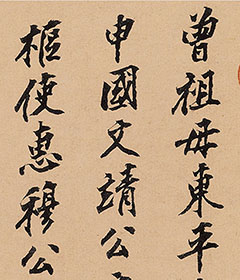 曾祖毋東平
申國文靖公
樞使惠穆公